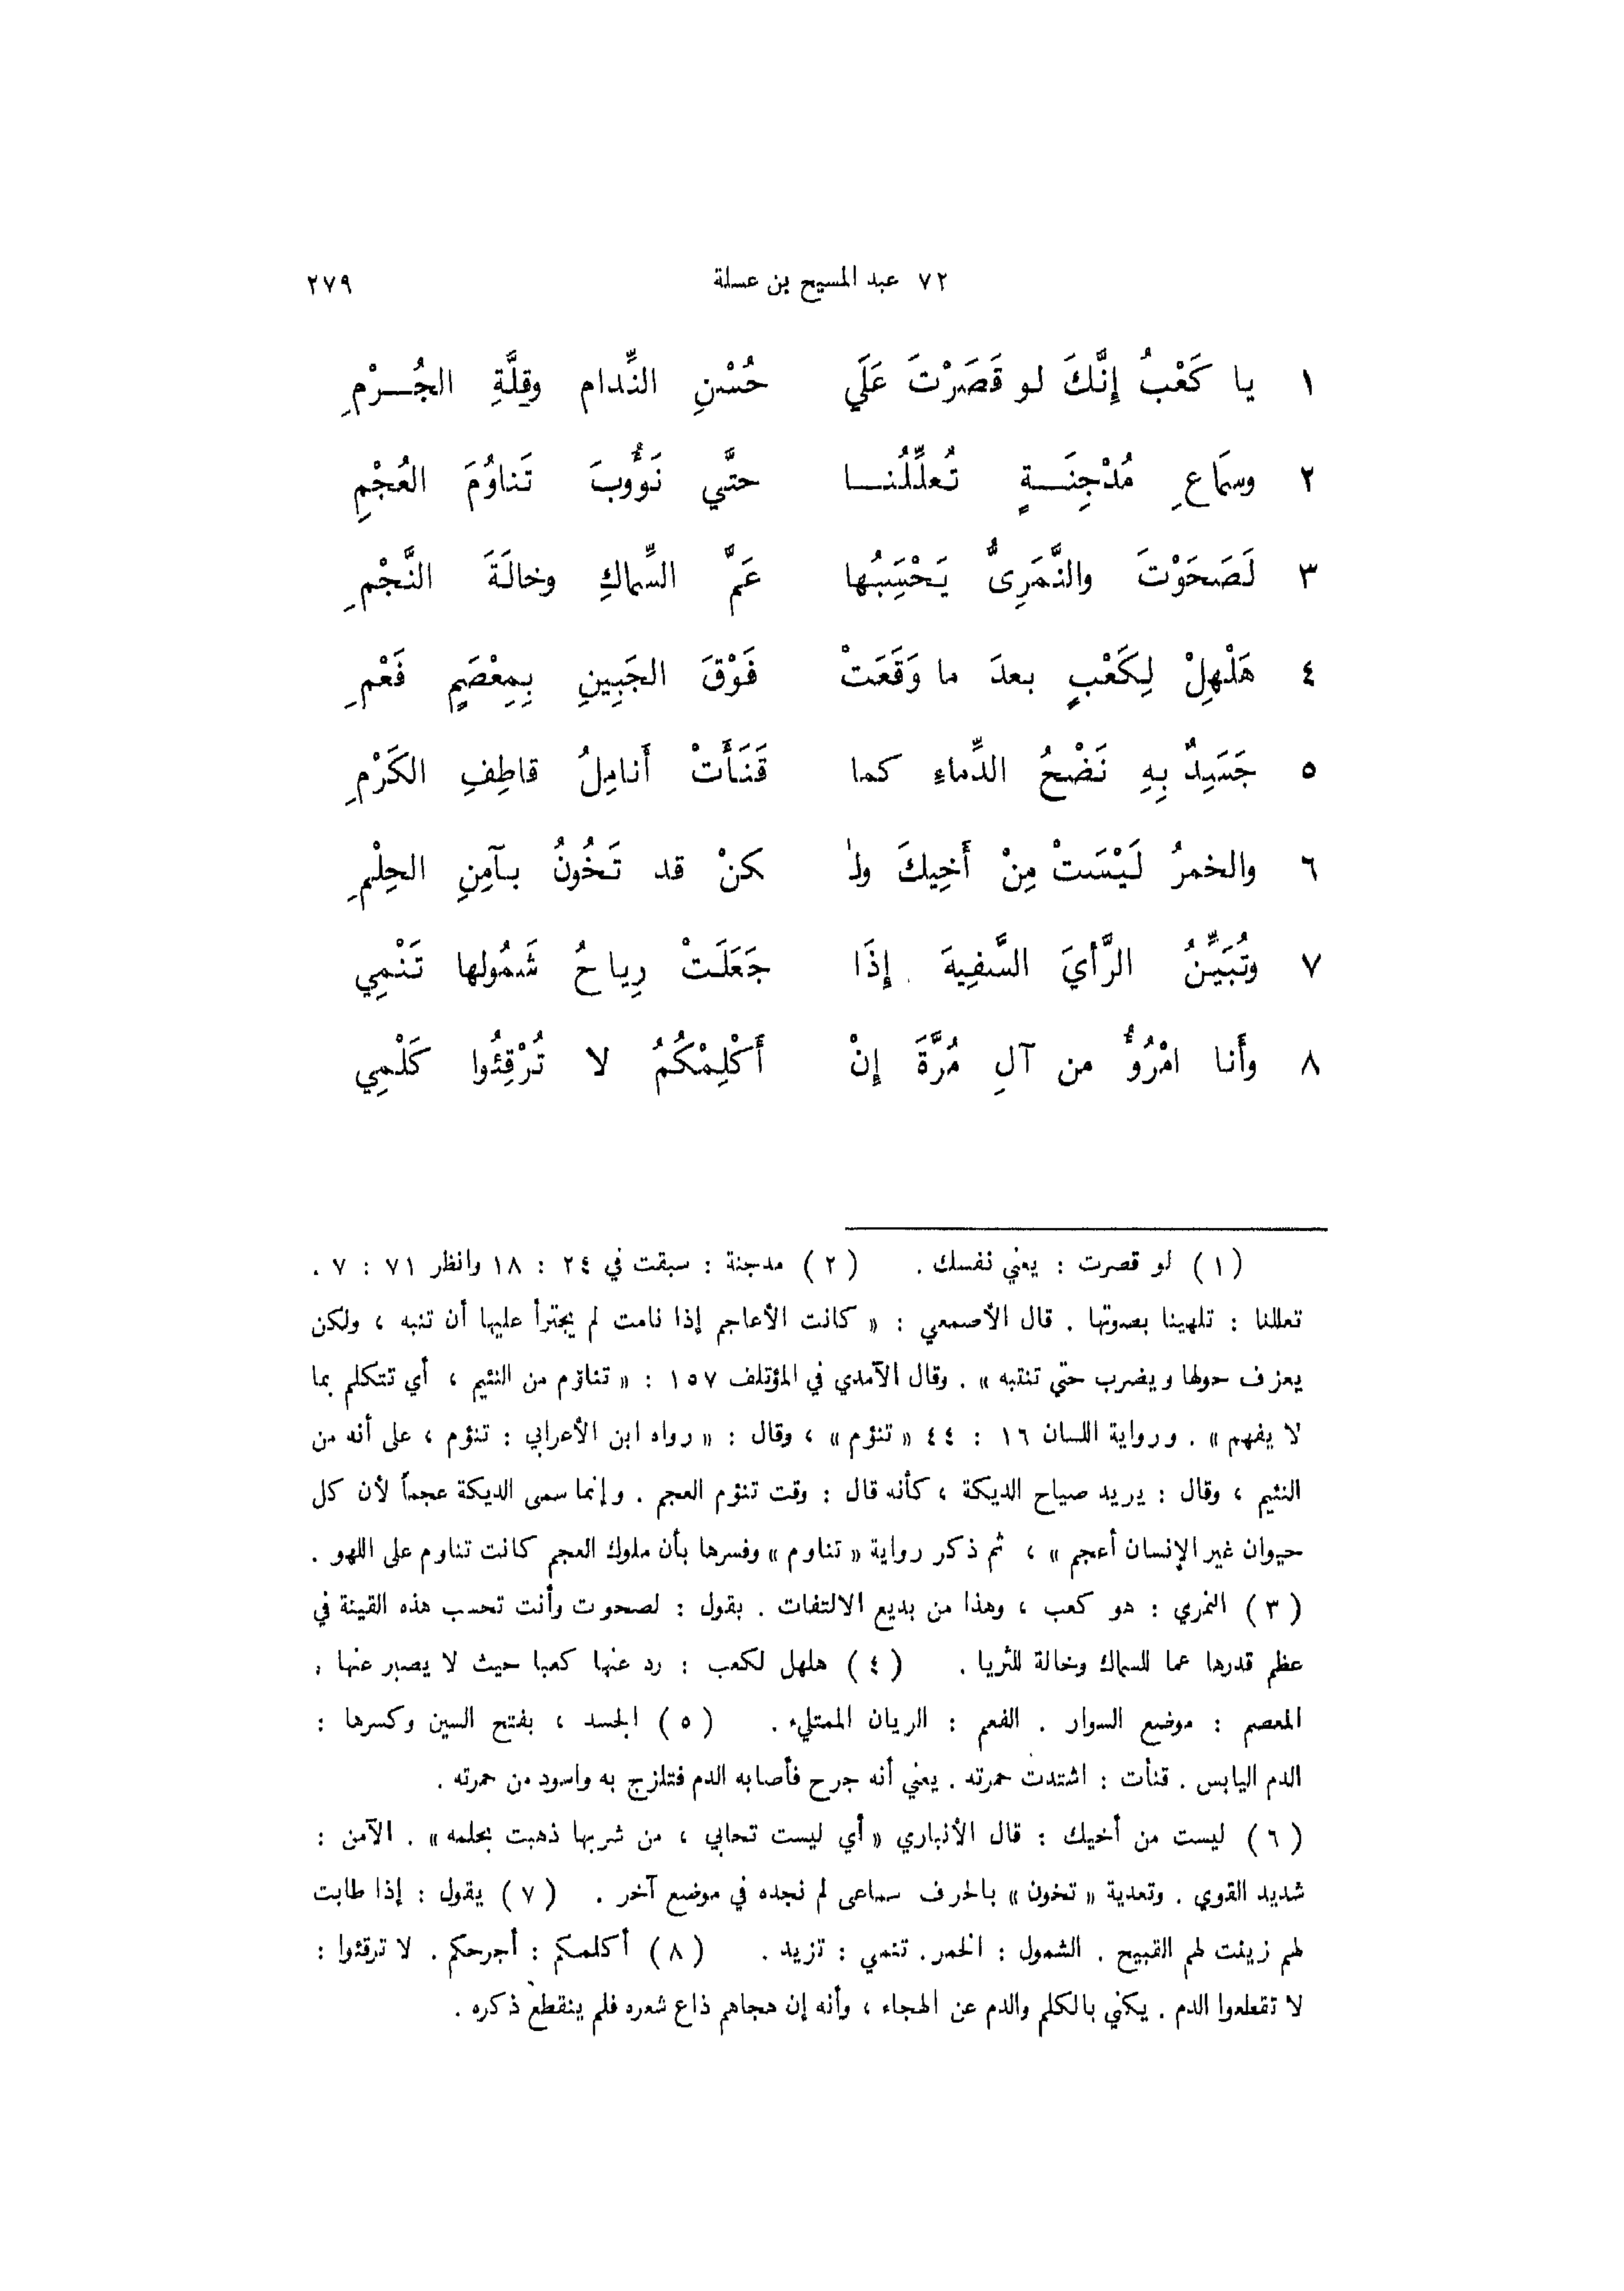 ٧٢ عبد المسيح بن عسلة ٢٧٩
١ يا كَعْبُ إِنَّكَ لو قَصَرْتَ عَلَى حُسْنِ النِّدامِ وقِلَّةِ الجُرْمِ
٢ وسمَاعِ مُدْجِنَةٍ تُعلِّلُنا حتَّى نَؤُوبَ تَناوُمَ العُجْمِ
٣ لَصَحَوْتَ والنَّمَرِىُّ يَحْسِبُها عَمَّ السِّماكِ وخالَةَ النَّجْمِ
٤ هَلْهِلْ لِكَعْبٍ بعدَ ما وَقَعَتْ فَوْقَ الجَبِينِ بِمِعْصَمٍ فَعْمِ
٥ جَسَدٌ بِهِ نَضْحُ الدِّماءِ كما قَنَأَتْ أَنامِلُ قاطِفِ الكَرْمِ
٦ والخمرُ لَيْسَتْ مِنْ أَخِيكَ ولٰـ كنْ قد تَخُونُ بآمِنِ الحِلْمِ
٧ وتُبَيِّنُ الرَّأيَ السَّفِيهَ إِذَا جَعَلَتْ رِياحُ شَمُولها تَنْمِي
٨ وأَنا امْرُؤٌ من آلِ مُرَّةَ إِنْ أَكْلِمْكُمُ لا تُرْقِئُوا كَلْمِي
(١) لو قصرت : يعني نفسك . (٢) مدجنة : سبقت في ٢٤ : ١٨ وانظر ٧١ : ٧ .
تعللنا : تلهينا بصوتها . قال الأصمعي : « كانت الأعاجم إذا نامت لم يجترأ عليها أن تنبه ، ولكن
يعزف حولها ويضرب حتى تنتبه » . وقال الآمدي في المؤتلف ١٥٧ : « تناؤم من النئيم ، أي تتكلم بما
لا يفهم » . ورواية اللسان ١٦ : ٤٤ « تنؤم » ، وقال : « رواه ابن الأعرابي : تنؤم ، على أنه من
النئيم ، وقال : يريد صياح الديكة ، كأنه قال : وقت تنؤم العجم . وإنما سمى الديكة عجماً لأن كل
حيوان غير الإنسان أعجم » ، ثم ذكر رواية « تناوم » وفسرها بأن ملوك العجم كانت تناوم على اللهو .
(٣) النمري : هو كعب ، وهذا من بديع الالتفات . يقول : لصحوت وأنت تحسب هذه القينة في
عظم قدرها عما للسماك وخالة للثريا . (٤) هلهل لكعب : رد عنها كعبا حيث لا يصبر عنها .
المعصم : موضع السوار . الفعم : الريان الممتلىء . (٥) الجسد ، بفتح السين وكسرها :
الدم اليابس . قنأت : اشتدت حمرته . يعني أنه جرح فأصابه الدم فتلزج به واسود من حمرته .
(٦) ليست من أخيك : قال الأنباري « أي ليست تحابي ، من شربها ذهبت بحلمه » . الآمن :
شديد القوي . وتعدية « تخون » بالحرف سماعى لم نجده في موضع آخر . (٧) يقول : إذا طابت
لهم زينت لهم القبيح . الشمول : الخمر. تنمي : تزيد . (٨) أكلمكم : أجرحكم . لا ترقئوا :
لا تقطعوا الدم . يكني بالكلم والدم عن الهجاء ، وأنه إن هجاهم ذاع شعره فلم ينقطع ذكره .